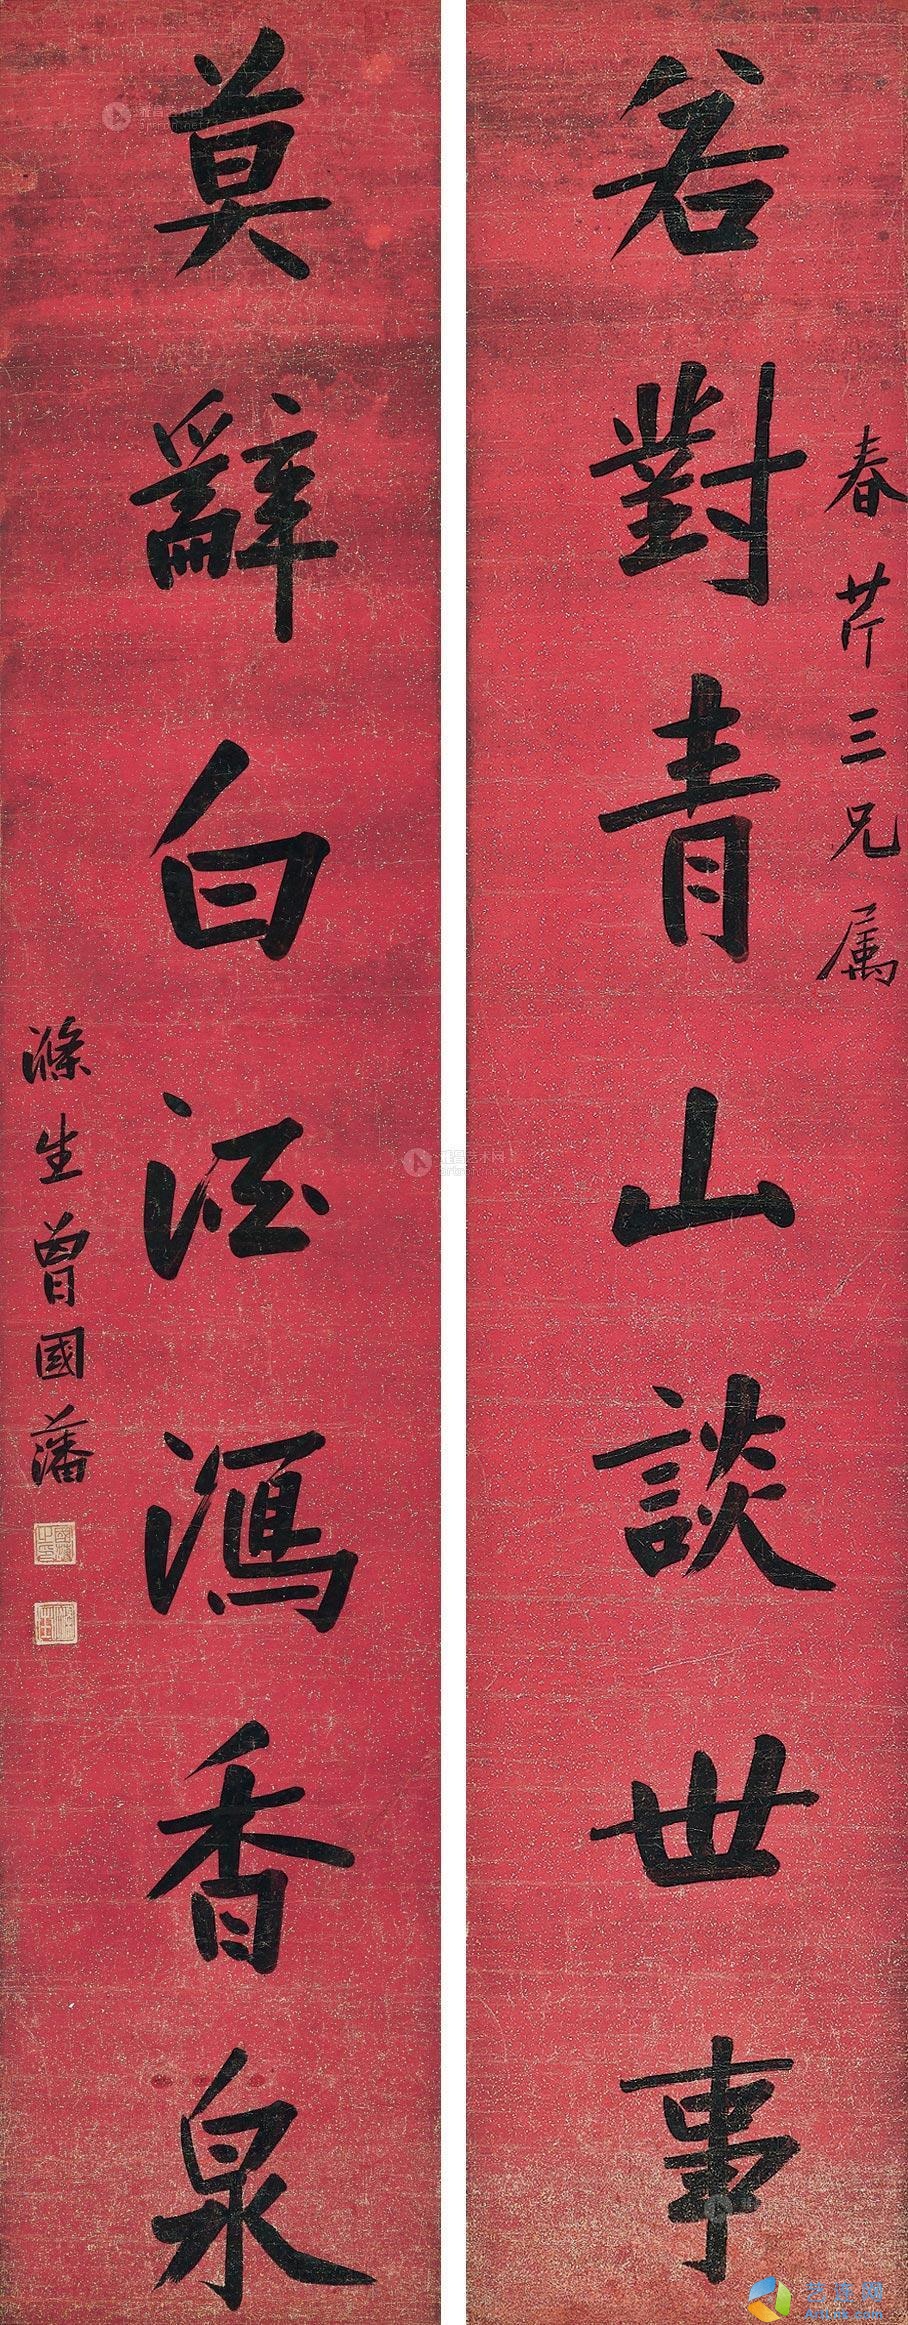 春芹三兄属
若對青山談世事
莫辭白酒瀉香泉
滌生曾國藩
雅昌艺术网
artron.net